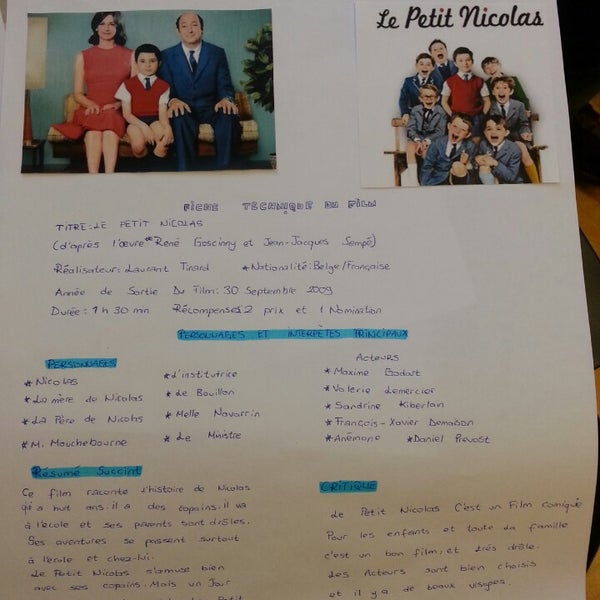 Le Petit Nicolas
FICHE TECHNIQUE DU FILM
TITRE: LE PETIT NICOLAS
(d'après l'œuvre * René Goscinny et Jean-Jacques Sempé)
Réalisateur: Laurent Tirard *Nationalité: Belge/Française
Année de Sortie Du Film: 30 Septembre 2009
Durée: 1h 30 min Récompenses 2 prix et 1 Nomination
PERSONNAGES ET INTERPÈTES PRINCIPAUX
PERSONNAGES
* Nicolas
* La mère de Nicolas
* La Père de Nicolas
* M. Mouchebourne
* L'institutrice
* Le Bouillon
* Melle Navarrin
* Le Ministre
Acteurs
* Maxime Godart
* Valerie Lemercier
* Sandrine Kiberlain
* François-Xavier Demaison
* Anémone * Daniel Prevost
Résumé Succint
Ce film raconte l'histoire de Nicolas
qi a huit ans. il a des copains. il va
à l'école et ses parents sont drôles.
Ses aventures se passent surtout
à l'école et chez-lui.
Le Petit Nicolas s'amuse bien
avec ses copains. Mais un Jour
Petit
CRITIQUE
Le Petit Nicolas C'est un Film comique
Pour les enfants et toute la famille
c'est un bon film, et très drôle.
Les Acteurs sont bien choisis
et il y a de beaux visages.